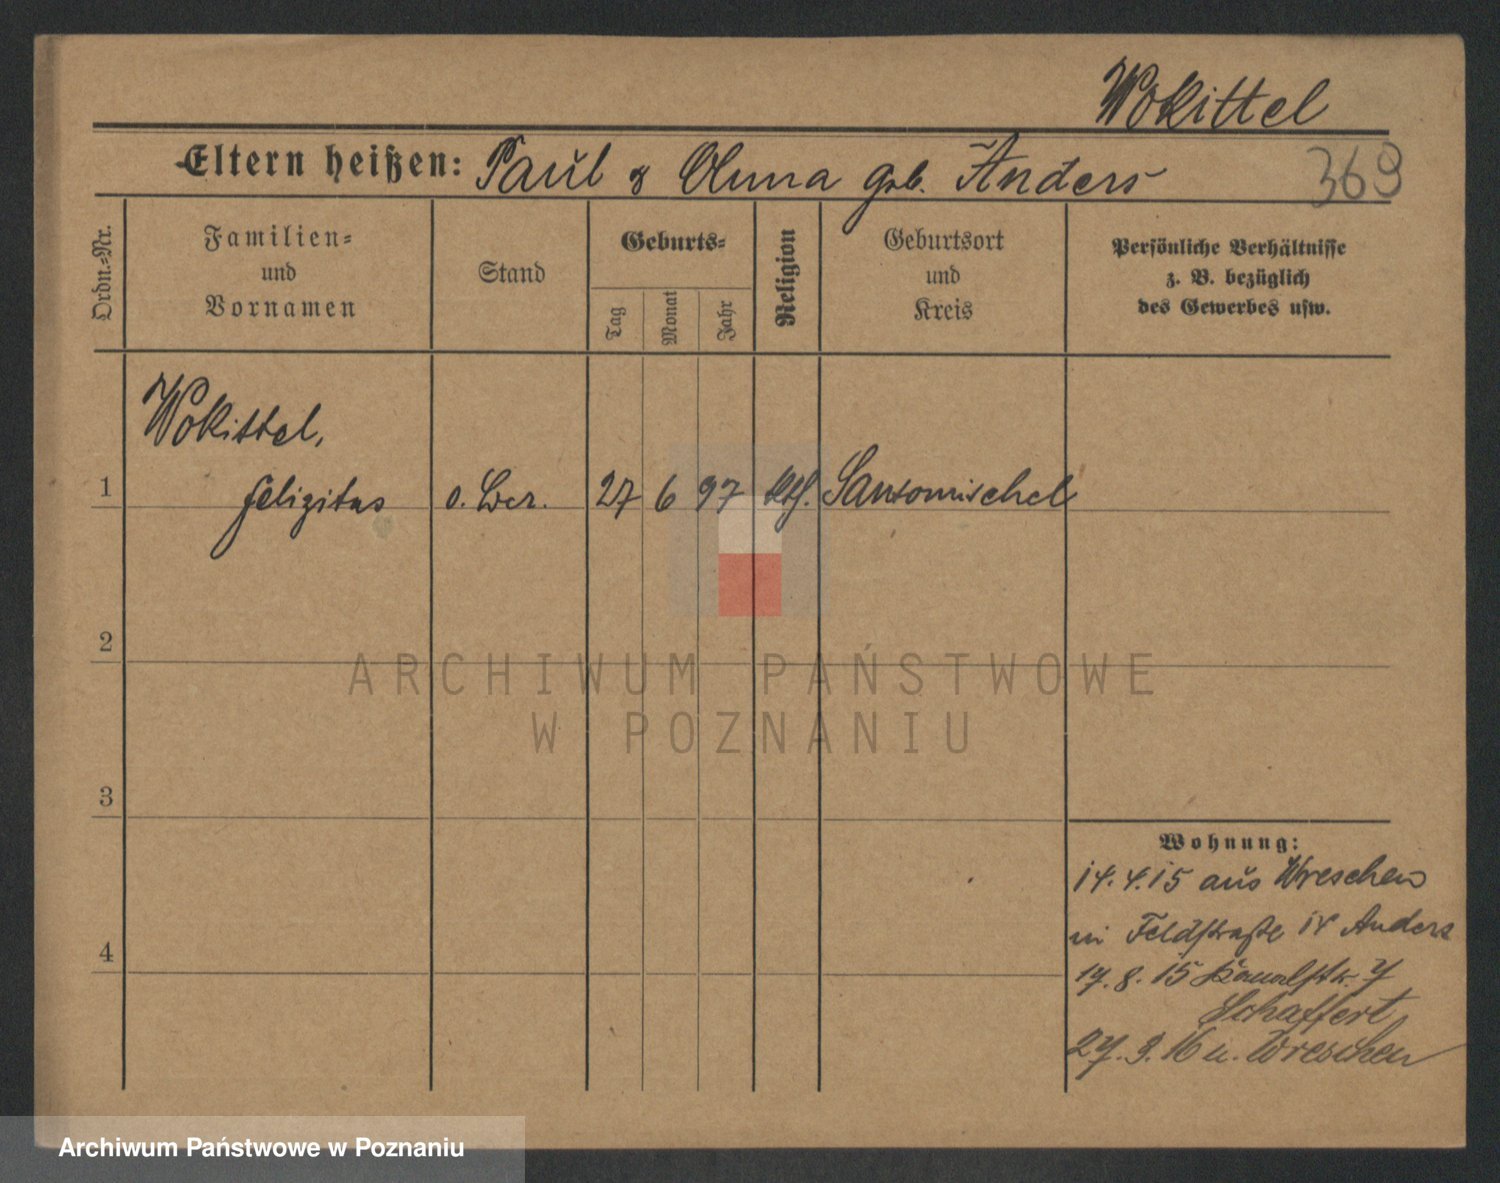 Wokittel
Eltern heißen: Paul & Anna geb. Anders
369
Ordn.=Nr.
Familien=
und
Vornamen
Stand
Geburts=
Tag
Monat
Jahr
Religion
Geburtsort
und
Kreis
Persönliche Verhältnisse
z. B. bezüglich
des Gewerbes usw.
Wokittel,
1 Felizitas o. Ber. 27 6 97 kth. Santomischel
2
3
4
Wohnung:
14.4.15 aus Wreschen
in Feldstraße 14 Anders
17.8.15 Kanalstr. 7
Schaffert
27.3.16 n. Wreschen
ARCHIWUM PAŃSTWOWE
W POZNANIU
Archiwum Państwowe w Poznaniu